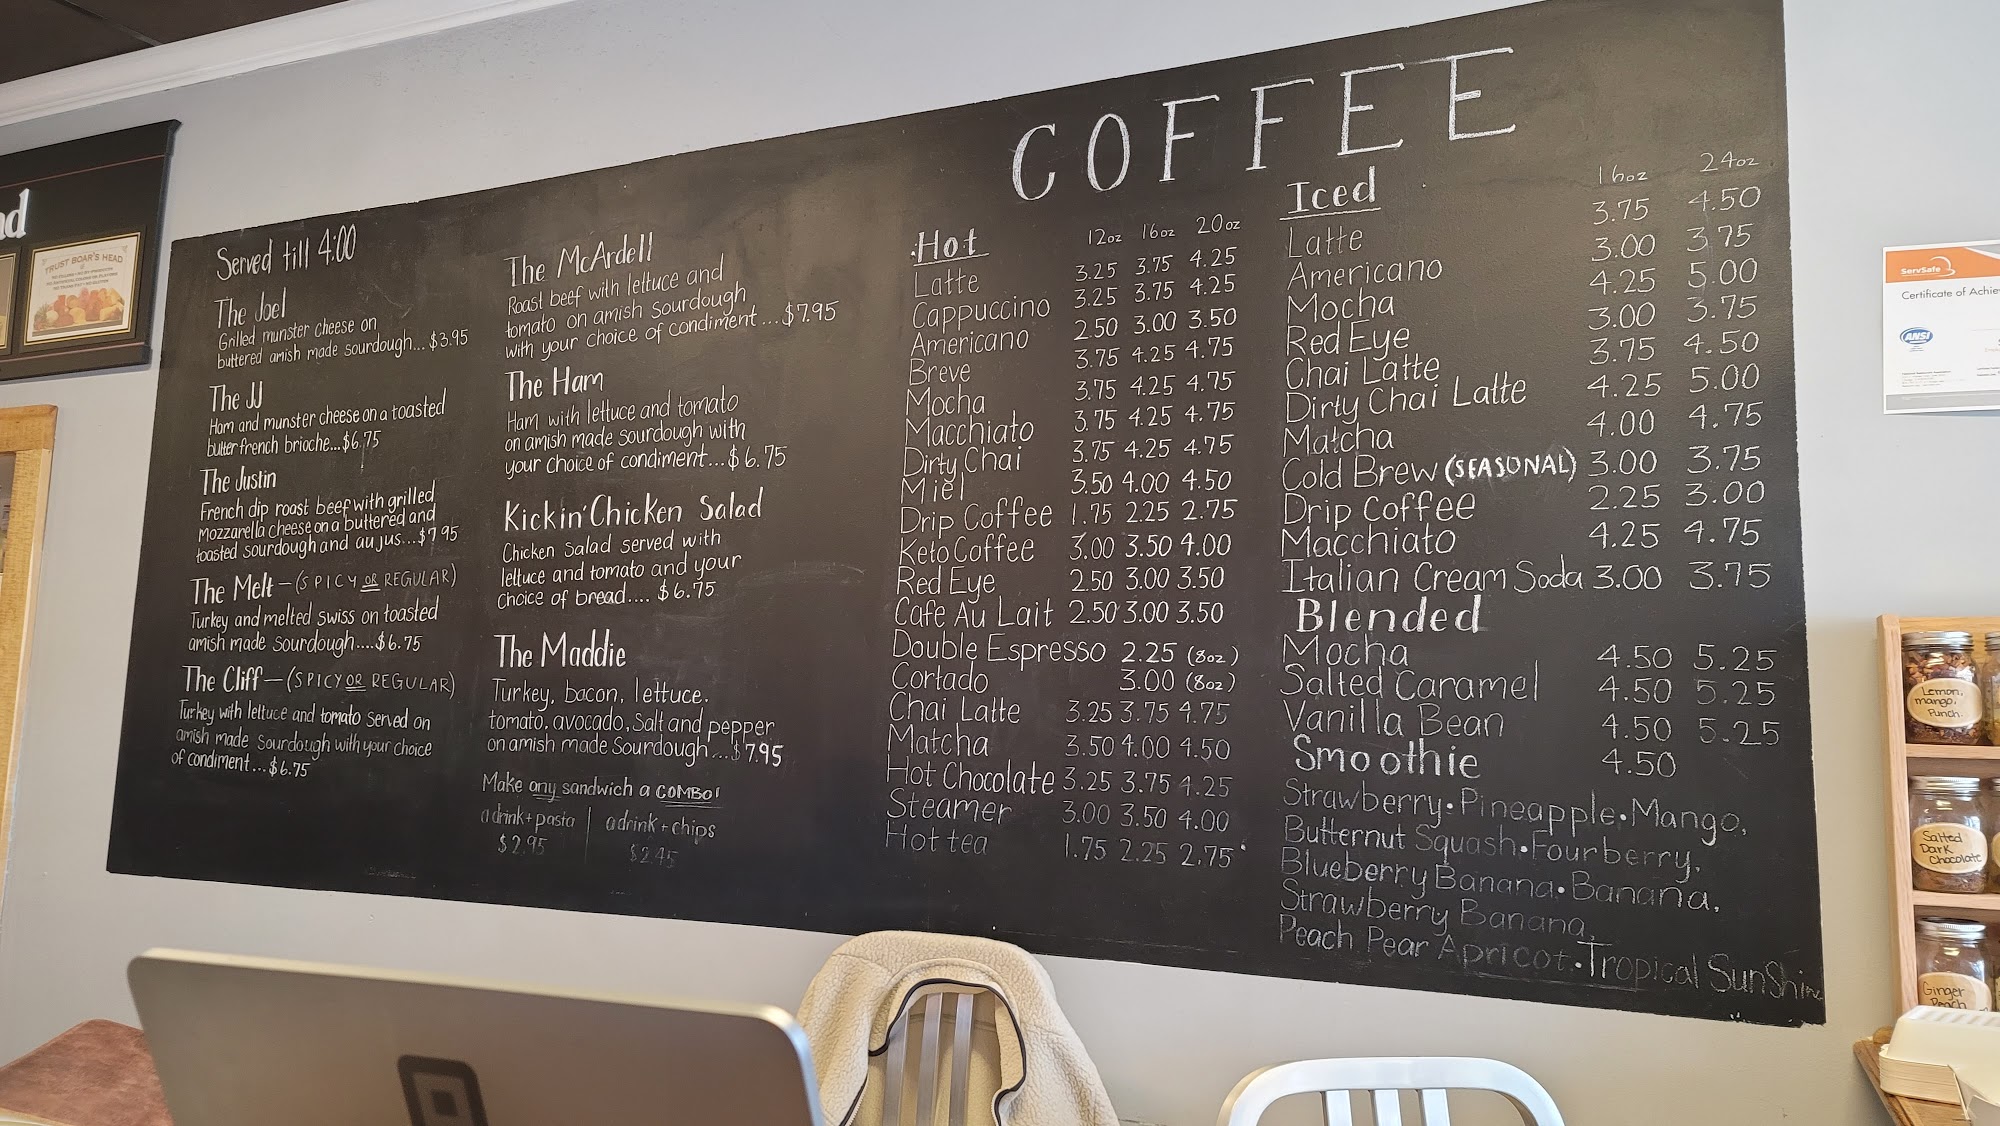 COFFEE
Served till 4:00
The Joel
Grilled munster cheese on
buttered amish made sourdough... $3.95
The JJ
Ham and munster cheese on a toasted
butter french brioche...$6.75
The Justin
French dip roast beef with grilled
mozzarella cheese on a buttered and
toasted sourdough and au jus...$7.95
The Melt - (SPICY OR REGULAR)
Turkey and melted swiss on toasted
amish made sourdough....$6.75
The Cliff - (SPICY OR REGULAR)
Turkey with lettuce and tomato served on
amish made sourdough with your choice
of condiment...$6.75
The McArdell
Roast beef with lettuce and
tomato on amish sourdough
with your choice of condiment...$7.95
The Ham
Ham with lettuce and tomato
on amish made sourdough with
your choice of condiment...$6.75
Kickin' Chicken Salad
Chicken Salad served with
lettuce and tomato and your
choice of bread.... $6.75
The Maddie
Turkey, bacon, lettuce.
tomato, avocado, salt and pepper
on amish made Sourdough...$7.95
Make any sandwich a COMBO!
a drink + pasta
$2.95
a drink + chips
$2.45
Hot 12oz 16oz 20oz
Latte 3.25 3.75 4.25
Cappuccino 3.25 3.75 4.25
Americano 2.50 3.00 3.50
Breve 3.75 4.25 4.75
Mocha 3.75 4.25 4.75
Macchiato 3.75 4.25 4.75
Dirty Chai 3.75 4.25 4.75
Miel 3.50 4.00 4.50
Drip Coffee 1.75 2.25 2.75
Keto Coffee 3.00 3.50 4.00
Red Eye 2.50 3.00 3.50
Cafe Au Lait 2.50 3.00 3.50
Double Espresso 2.25 (8oz)
Cortado 3.00 (8oz)
Chai Latte 3.25 3.75 4.75
Matcha 3.50 4.00 4.50
Hot Chocolate 3.25 3.75 4.25
Steamer 3.00 3.50 4.00
Hot tea 1.75 2.25 2.75
Iced 16oz 24oz
Latte 3.75 4.50
Americano 3.00 3.75
Mocha 4.25 5.00
Red Eye 3.00 3.75
Chai Latte 3.75 4.50
Dirty Chai Latte 4.25 5.00
Matcha 4.00 4.75
Cold Brew (SEASONAL) 3.00 3.75
Drip Coffee 2.25 3.00
Macchiato 4.25 4.75
Italian Cream Soda 3.00 3.75
Blended
Mocha 4.50 5.25
Salted Caramel 4.50 5.25
Vanilla Bean 4.50 5.25
Smoothie 4.50
Strawberry • Pineapple • Mango,
Butternut Squash • Fourberry,
Blueberry Banana • Banana,
Strawberry Banana,
Peach Pear Apricot • Tropical SunShine
TRUST BOAR'S HEAD
ServSafe
Certificate of Achiev
ANSI
Lemon,
mango,
Punch.
Salted
Dark
Chocolate
Ginger
Peach